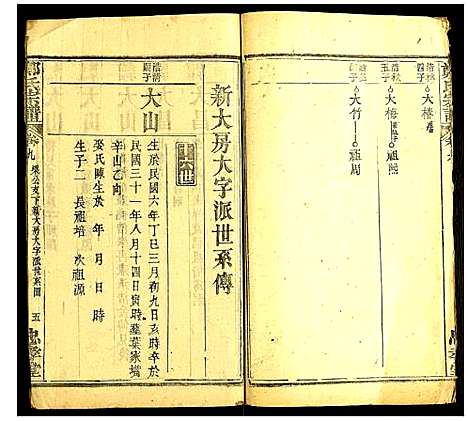 大椿
五子
大梅
祖熙
大竹
祖周
新大房大字派世系傳
大山
生於民國六年丁巳三月初九日亥時卒於
民國三十一年八月十四日寅時墓葉家壋
辛山乙向
娶氏陳生於 年 月 日 時
生子二 長祖培 次祖源
鄭氏宗譜
卷九
下新大房大字派世系圖
五
忠孝堂